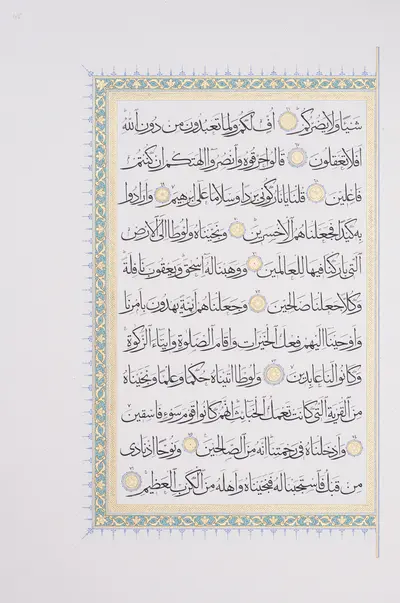 شيئا ولا يضركم اف لكم ولما تعبدون من دون الله
افلا تعقلون قالوا حرقوه وانصروا آلهتكم ان كنتم
فاعلين قلنا يا نار كوني بردا وسلاما على ابرهيم وارادوا
به كيدا فجعلناهم الاخسرين ونجيناه ولوطا الى الارض
التي باركنا فيها للعالمين ووهبنا له اسحق ويعقوب نافلة
وكلا جعلنا صالحين وجعلناهم ائمة يهدون بامرنا
واوحينا اليهم فعل الخيرات واقام الصلوة وايتاء الزكوة
وكانوا لنا عابدين ولوطا آتيناه حكما وعلما ونجيناه
من القرية التي كانت تعمل الخبائث انهم كانوا قوم سوء فاسقين
وادخلناه في رحمتنا انه من الصالحين ونوحا اذ نادى
من قبل فاستجبنا له فنجيناه واهله من الكرب العظيم